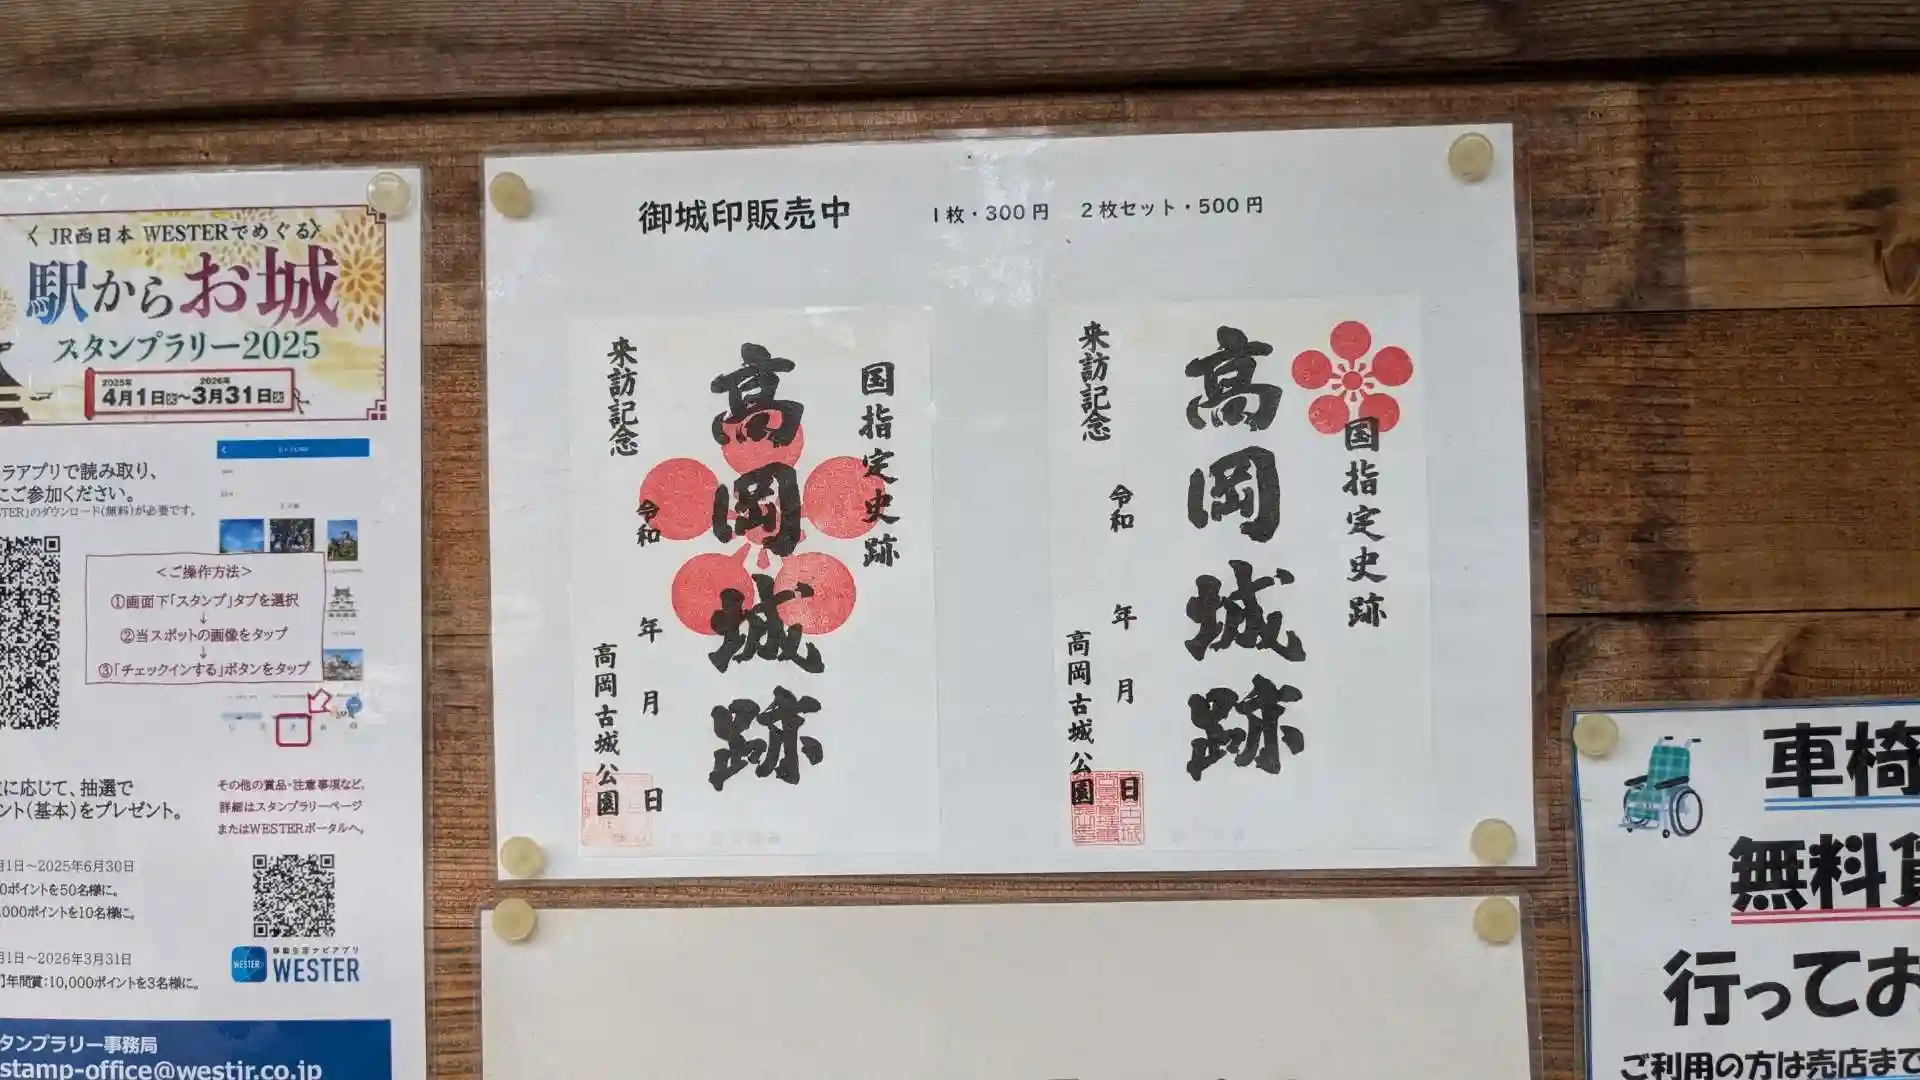 〈 JR西日本 WESTERでめぐる〉
駅からお城
スタンプラリー2025
2025年 2026年
4月1日火〜3月31日火
ラアプリで読み取り、
こご参加ください。
STER」のダウンロード(無料)が必要です。
<ご操作方法>
①画面下「スタンプ」タブを選択
↓
②当スポットの画像をタップ
↓
③「チェックインする」ボタンをタップ
に応じて、抽選で
ント(基本)をプレゼント。
その他の賞品・注意事項など、
詳細はスタンプラリーページ
またはWESTERポータルへ。
月1日〜2025年6月30日
0ポイントを50名様に。
,000ポイントを10名様に。
月1日〜2026年3月31日
年間賞:10,000ポイントを3名様に。
WESTER
移動生活ナビアプリ
WESTER
タンプラリー事務局
stamp-office@westjr.co.jp
御城印販売中 1枚・300円 2枚セット・500円
国指定史跡
高岡城跡
来訪記念
令和 年 月 日
高岡古城公園
国指定史跡
高岡城跡
来訪記念
令和 年 月 日
高岡古城公園
車椅
無料貸
行ってお
ご利用の方は売店まで